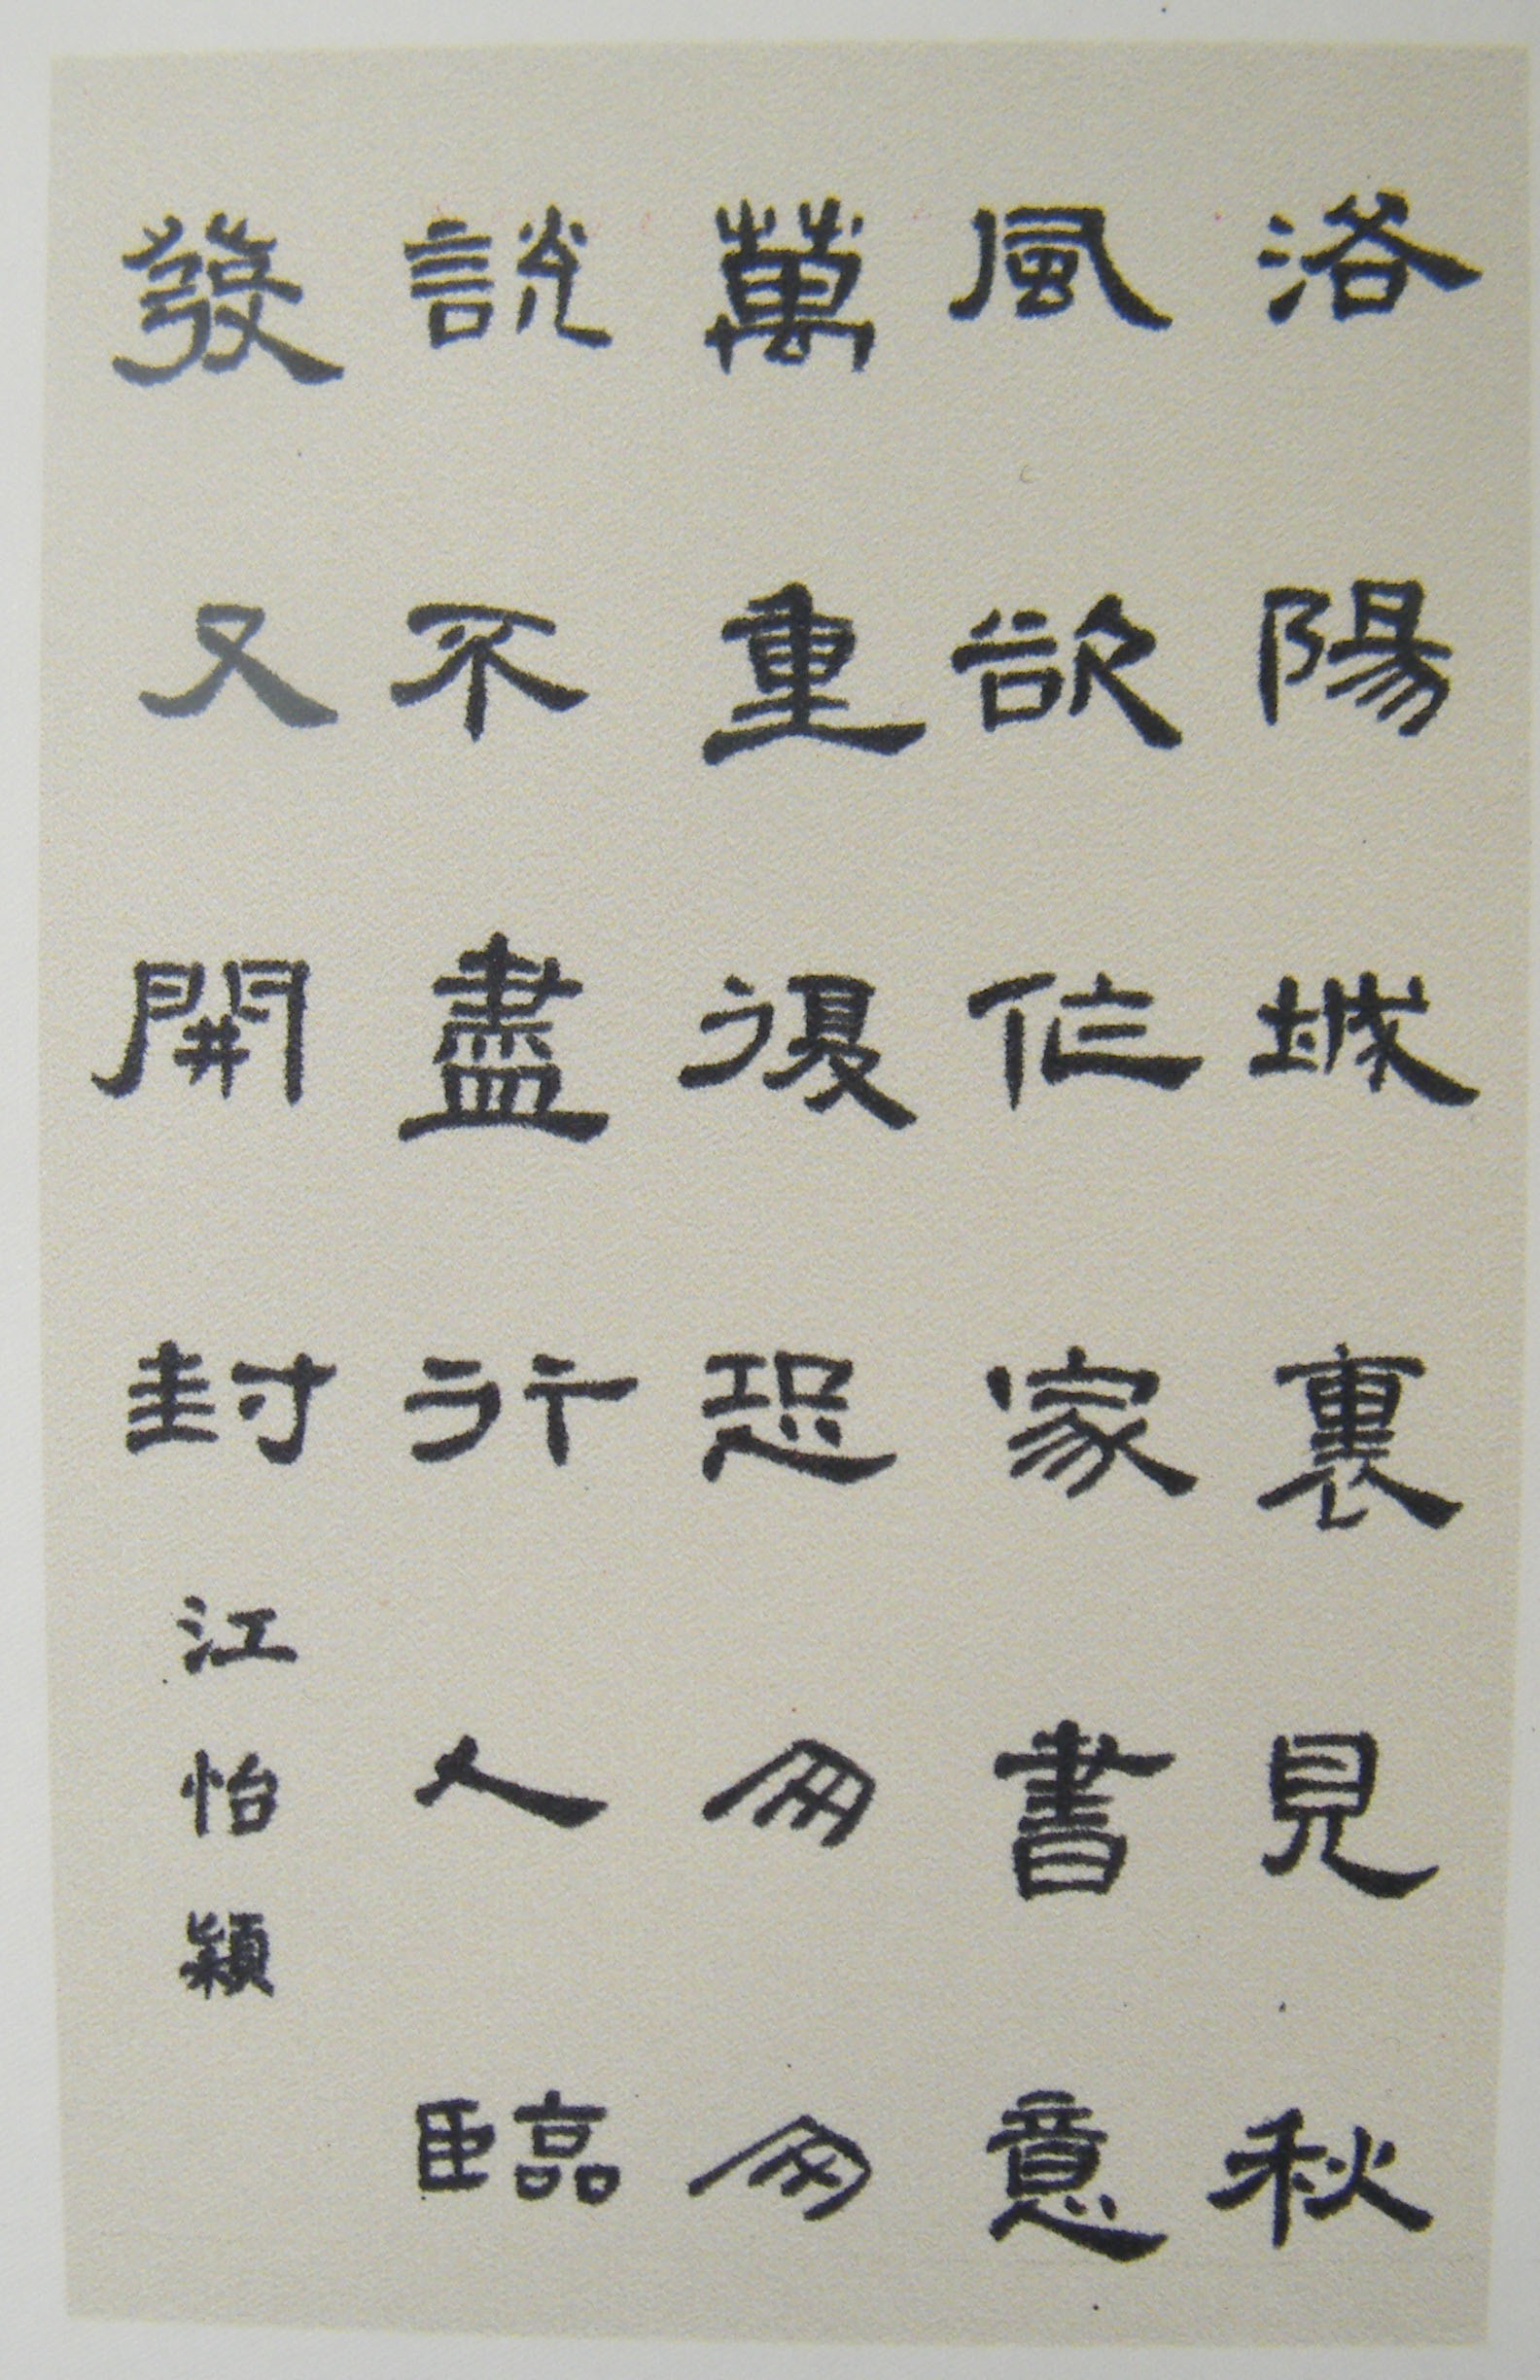 洛陽城裏見秋
風欲作家書意
萬重復恐匆匆
說不盡行人臨
發又開封
江怡穎